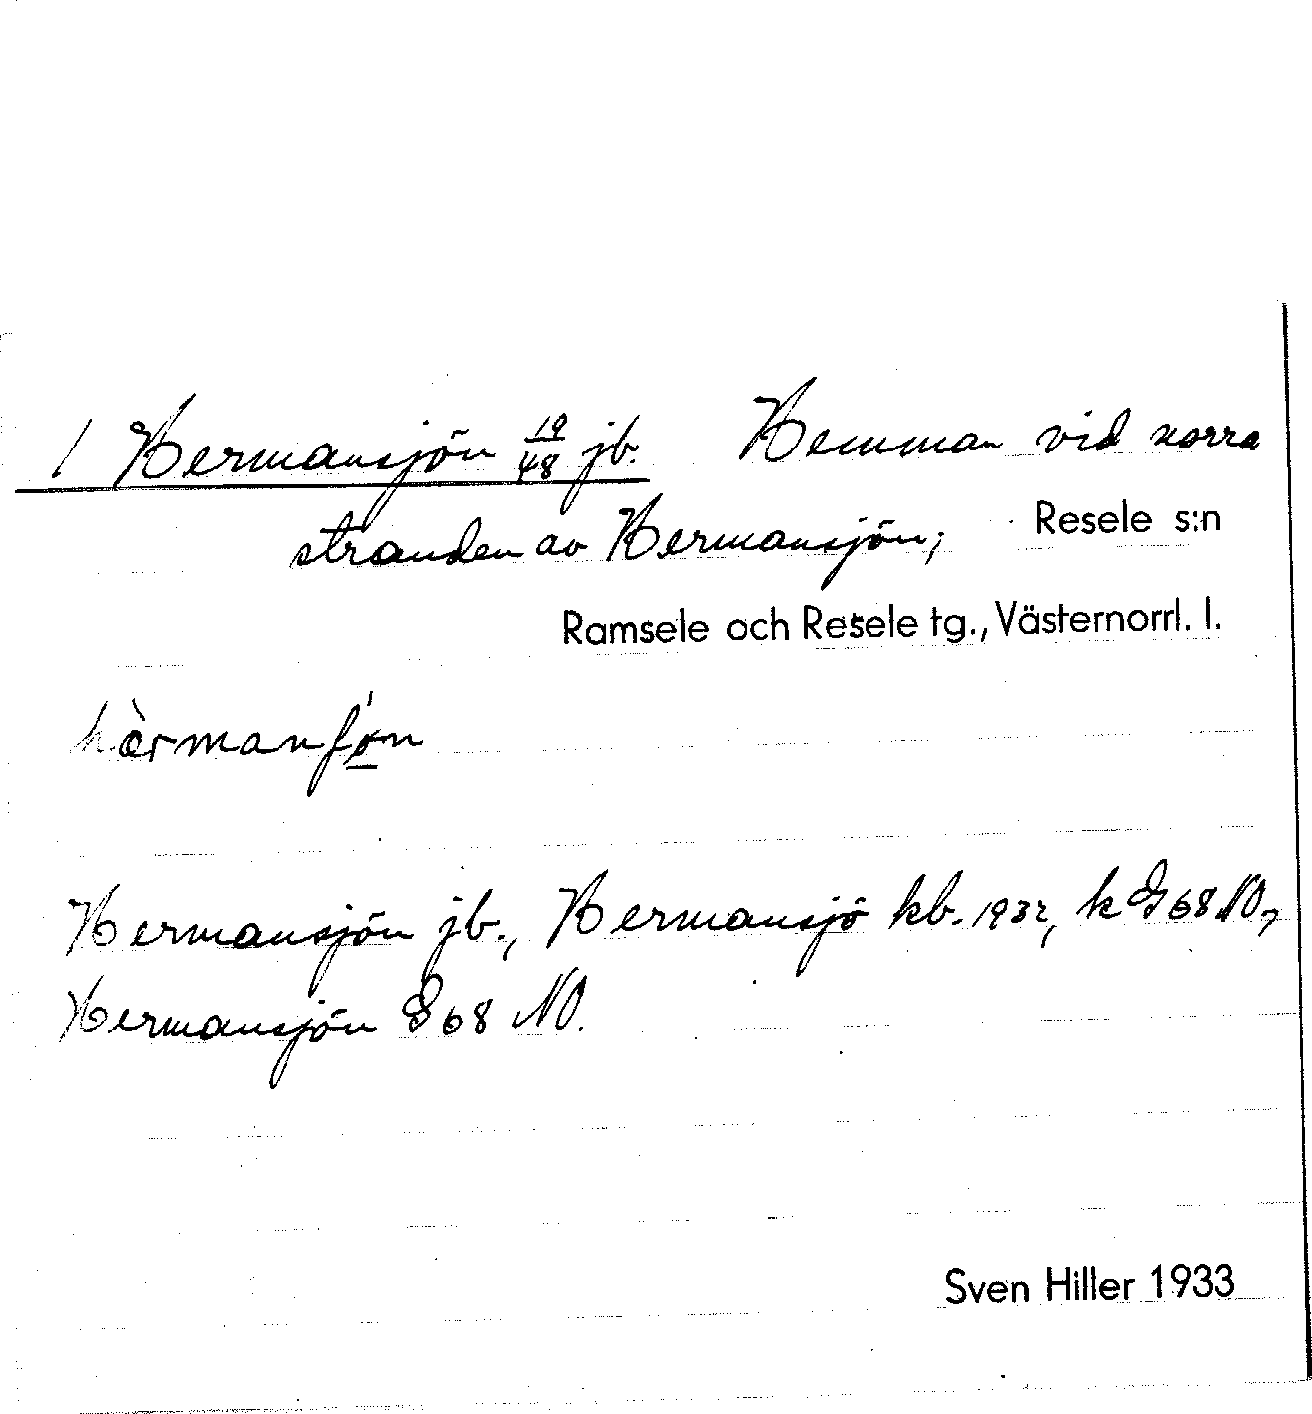 1 Hermansjön 19/48 jb. Hemman vid norra
stranden av Hermansjön; Resele s:n
Ramsele och Resele tg., Västernorrl. l.
hὲrmanʃø̀n
Hermansjön jb., Hermansjö kb. 1932, k G68 NO,
Hermansjön G68 NO.
Sven Hiller 1933